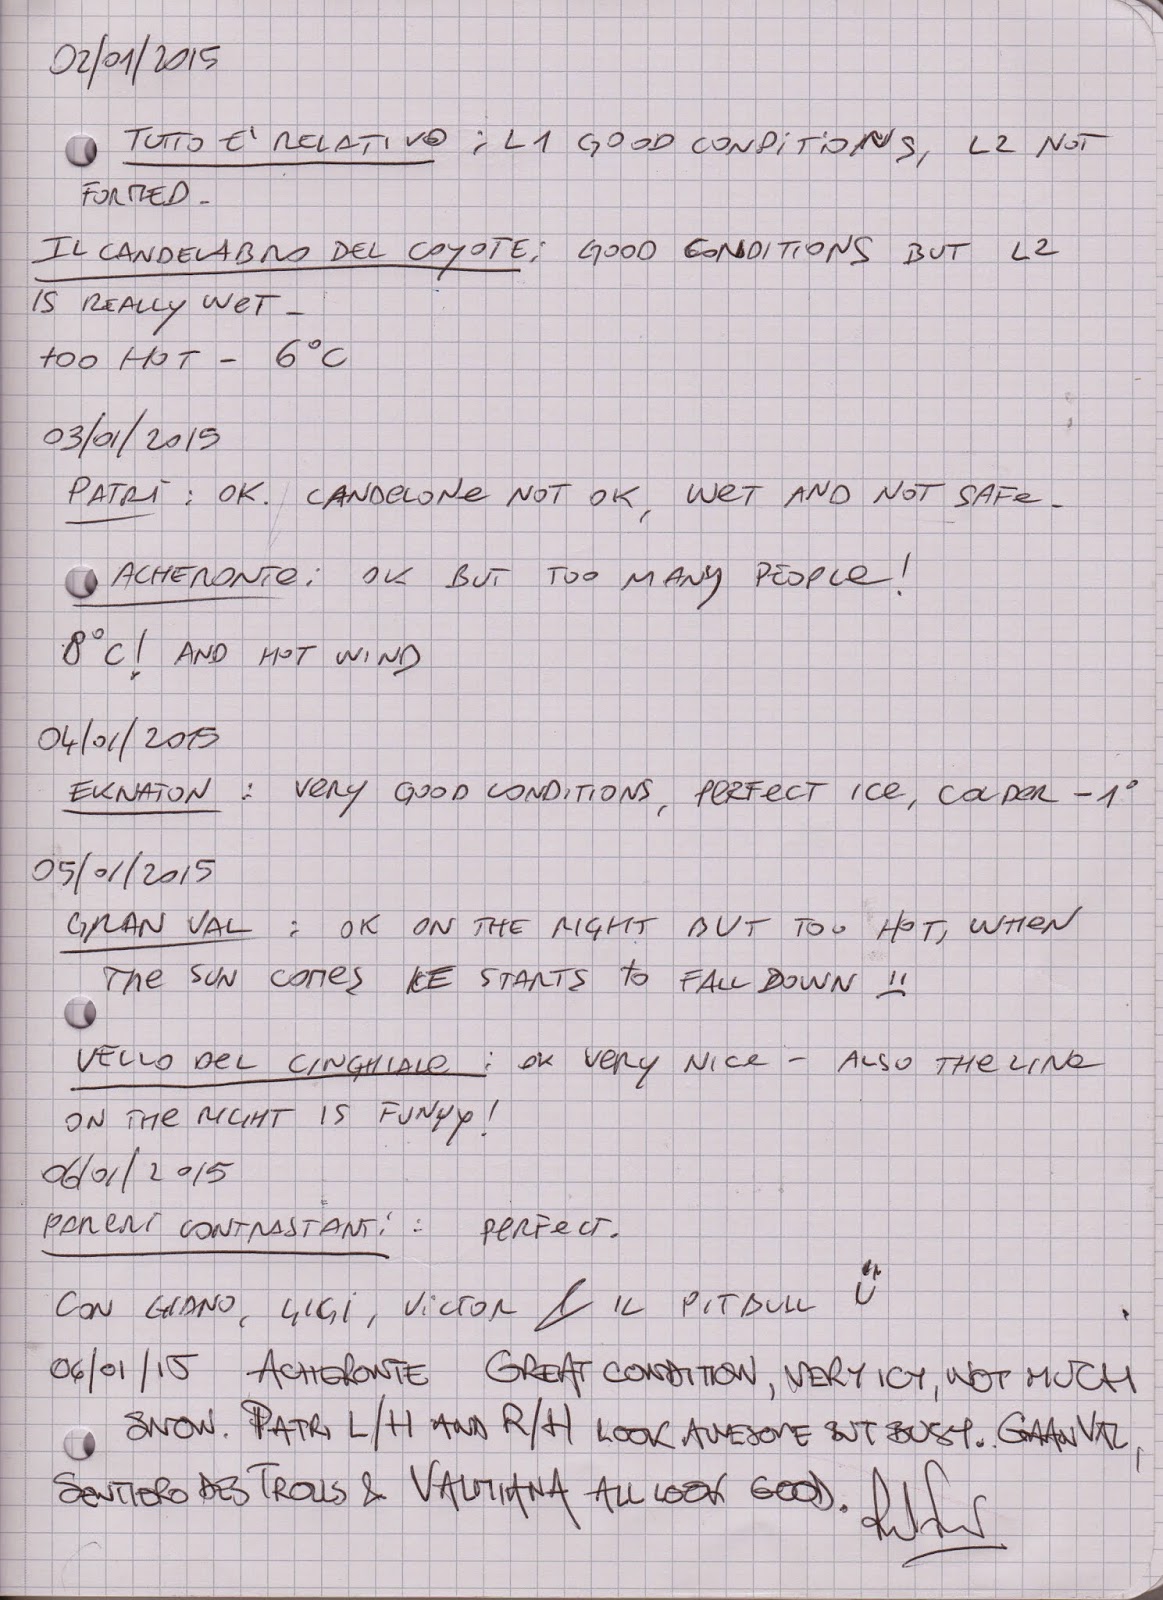 02/01/2015
TUTTO E' RELATIVO : L1 GOOD CONDITIONS, L2 NOT
FORMED -
IL CANDELABRO DEL COYOTE: GOOD CONDITIONS BUT L2
IS REALLY WET -
too HOT - 6°C
03/01/2015
PATRÌ : OK. CANDELONE NOT OK, WET AND NOT SAFE -
ACHERONTE: OK BUT TOO MANY PEOPLE!
8°C! AND HOT WIND
04/01/2015
EKNATON : VERY GOOD CONDITIONS, PERFECT ICE, COLDER -1°
05/01/2015
GRAN VAL : OK ON THE RIGHT BUT TOO HOT, WHEN
THE SUN COMES ICE STARTS to FALL DOWN !!
VELLO DEL CINGHIALE : OK VERY NICE - ALSO THE LINE
ON THE RIGHT IS FUNYY!
06/01/2015
PARERI CONTRASTANTI : PERFECT.
CON GIANO, GIGI, VICTOR & IL PITBULL
06/01/15 ACHERONTE GREAT CONDITION, VERY ICY, NOT MUCH
SNOW. PATRI L/H AND R/H LOOK AWESOME BUT BUSY. GRAN VAL,
SENTIERO DES TROLLS & VALMIANA ALL LOOK GOOD.